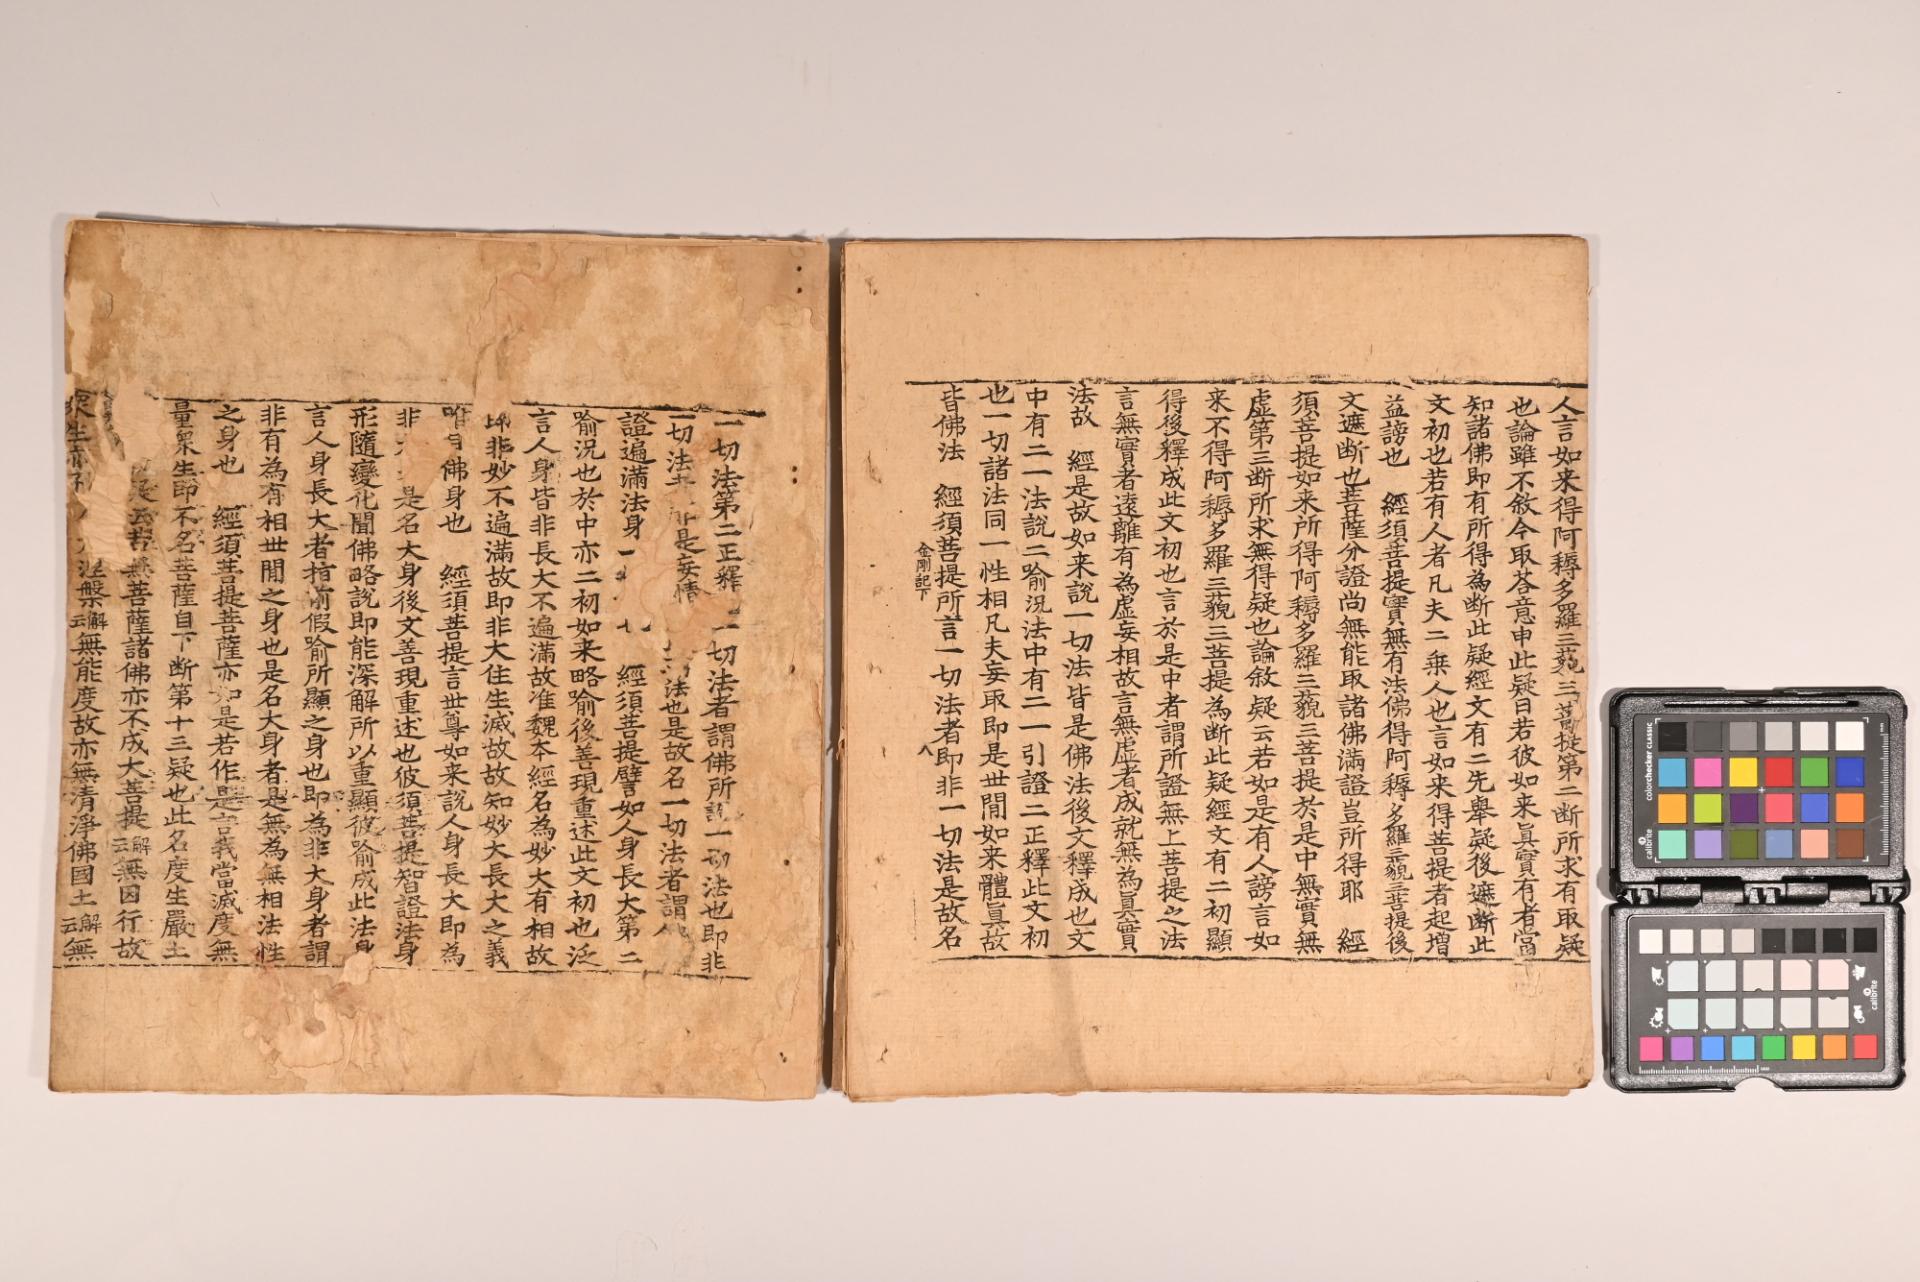 人言如来得阿耨多羅三藐三菩提第二断所求有取疑
也論雖不敘今取荅意申此疑曰若彼如来真實有者當
知諸佛即有所得為断此疑經文有二先舉疑後遮断此
文初也若有人者凡夫二乗人也言如来得菩提者起增
益謗也 經須菩提實無有法佛得阿耨多羅三藐三菩提後
文遮断也菩薩分證尚無能取諸佛滿證豈所得耶 經
須菩提如来所得阿耨多羅三藐三菩提於是中無實無
虛第三断所求無得疑也論敘疑云若如是有人謗言如
来不得阿耨多羅三藐三菩提為断此疑經文有二初顯
得後釋成此文初也言於是中者謂所證無上菩提之法
言無實者遠離有為虛妄相故言無虛者成就無為真實
法故 經是故如来說一切法皆是佛法後文釋成也文
中有二一法說二喻況法中有二一引證二正釋此文初
也一切諸法同一性相凡夫妄取即是世間如来體真故
皆佛法 經須菩提所言一切法者即非一切法是故名
金剛記下 八
一切法第二正釋 一切法者謂佛所說一切法也即非
一切法 是妄情 法也是故名一切法者謂
證遍滿法身 經須菩提譬如人身長大第二
喻況也於中亦二初如来略喻後善現重述此文初也泛
言人身皆非長大不遍滿故准魏本經名為妙大有相故
即非妙不遍滿故即非大住生滅故故知妙大長大之義
唯 佛身也 經須菩提言世尊如来說人身長大即為
非 是名大身後文善現重述也彼須菩提智證法身
形隨變化聞佛略說即能深解所以重顯彼喻成此法身
言人身長大者指前假喻所顯之身也即為非大身者謂
非有為有相世間之身也是名大身者是無為無相法性
之身也 經須菩提菩薩亦如是若作是言我當滅度無
量眾生即不名菩薩自下断第十三疑也此名度生嚴土
疑云若無菩薩諸佛亦不成大菩提解云無因行故
眾生亦不 涅槃解云無能度故亦無清淨佛國土解云無